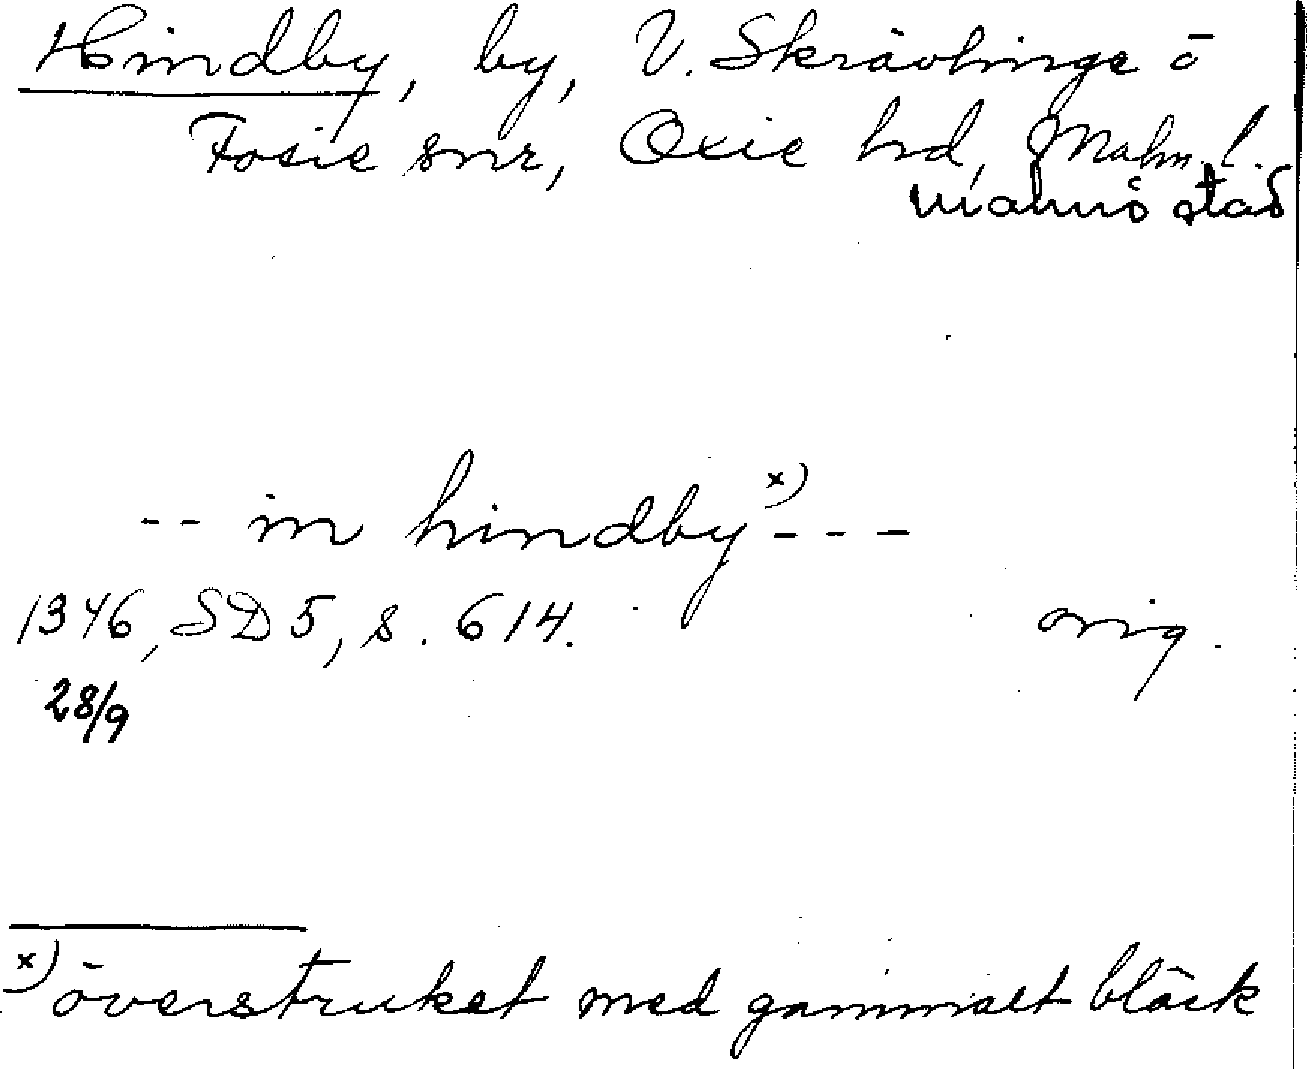 Hindby, by, V. Skrävlinge o
Fosie snr, Oxie hd, Malm. l.
Malmö stad
-- in hindby x) ---
1346, SD 5, s. 614. orig.
28/9
x) överstruket med gammalt bläck